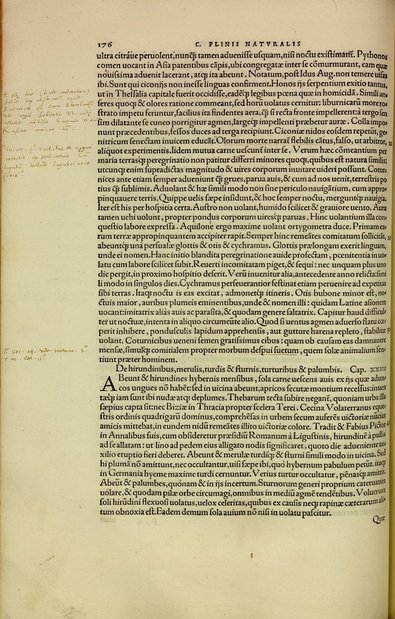 176 C. PLINII NATVRALIS
ultra citraue peruolent, nunq̃ tamen aduenisse usquam, nisi noctu existimarũ. Pythonos
comen uocant in Asia patentibus cãpis, ubi congregatæ inter se cõmurmurant, eam quæ
nouissima aduenit lacerant, atq; ita abeunt. Notatum, post Idus Aug. non temere uisas
ibi. Sunt qui ciconijs non inesse linguas confirment. Honos ijs serpentium exitio tantus,
ut in Thessalia capitale fuerit occidisse, eadẽq; legibus pœna quæ in homicidã. Simili an
seres quoq; & olores ratione commeant, sed horũ uolatus cernitur: liburnicarũ more ro
strato impetu feruntur, facilius ita findentes aera, q̃ si recta fronte impellerẽt: à tergo sen
sim dilatante se cuneo porrigitur agmen, largẽq; impellenti præbetur auræ. Colla impo
nunt præcedentibus, fessos duces ad terga recipiunt. Ciconiæ nidos eosdem repetũt, ge
nitricum senectam inuicem educãt. Olorum morte narrat̃ flebilis cãtus, falso, ut arbitror,
aliquot experimentis. Iidem mutua carne uescunt̃ inter se. Verum hæc commeantium per
maria terrasq; peregrinatio non patitur differri minores quoq;, quibus est natura similis:
utcunq; enim supradictas magnitudo & uires corporum inuitare uideri possunt. Cotur-
nices ante etiam semper adueniunt q̃ grues, parua auis, & cum ad nos uenit, terrestris po
tius q̃ sublimis. Aduolant & hæ simili modo non sine periculo nauigãtium, cum appro
pinquauere terris. Quippe uelis sæpe insidunt, & hoc semper noctu, merguntq; nauigia.
Iter est his per hospitia certa. Austro non uolant, humido scilicet & grauiore uento. Aura
tamen uehi uolunt, propter pondus corporum uiresq; paruas. Hinc uolantium illa con-
questio labore expressa. Aquilone ergo maxime uolant ortygometra duce. Primam ea
rum terræ appropinquantem accipiter rapit. Semper hinc remeãtes comitatum sollicitãt,
abeuntq; unà persuasæ glottis & otis & cychramus. Glottis prælongam exerit linguam,
unde ei nomen. Hanc initio blandita peregrinatione auide profectam, pœnitentia in uo
latu cum labore scilicet subit. Reuerti incomitatam piget, & sequi: nec unquam plus uno
die pergit, in proximo hospitio deserit. Verũ inuenitur alia, antecedente anno relicta: simi
li modo in singulos dies. Cychramus perseuerantior festinat etiam peruenire ad expetitas
sibi terras. Itaq; noctu is eas excitat, admonetq; itineris. Otis bubone minor est, no
ctuis maior, auribus plumeis eminentibus, unde & nomen illi: quidam Latine asionem
uocant: imitatrix aliàs auis ac parasita, & quodam genere saltatrix. Capitur haud difficul
ter ut noctuæ, intenta in aliquo circumeũte alio. Quod si uentus agmen aduerso flatu cœ
perit inhibere, pondusculis lapidum apprehensis, aut gutture harena repleto, stabilitæ
uolant. Coturnicibus ueneni semen gratissimus cibus: quam ob causam eas damnauere
mensæ, simulq; comitialem propter morbum despui suetum, quem solæ animalium sen-
tiunt præter hominem.
De hirundinibus, merulis, turdis & sturnis, turturibus & palumbis. Cap. XXIIII
ABeunt & hirundines hybernis mensibus, sola carne uescens auis ex ijs quæ adun-
cos ungues nõ habẽt: sed in uicina abeunt, apricos secutæ montium recessus: inuẽ
tæq; iam sunt ibi nudæ atq; deplumes. Thebarum tecta subire negant̃, quoniam urbs illa
sæpius capta sit: nec Bizizæ in Thracia propter scelera Terei. Cecina Volaterranus eque-
stris ordinis quadrigarũ dominus, comprehẽsas in urbem secum auferẽs uictoriæ nũcias
amicis mittebat, in eundem nidũ remeãtes illito uictoriæ colore. Tradit & Fabius Pictor
in Annalibus suis, cum obsideretur præsidiũ Romanum à Ligustinis, hirundinẽ à pullis
ad se allatam: ut lino ad pedem eius alligato nodis significaret, quoto die adueniente au-
xilio eruptio fieri deberet. Abeunt & merulæ turdiq; & sturni simili modo in uicina. Sed
hi plumã nõ amittunt, nec occultantur, uisi sæpe ibi, quò hybernum pabulum petũt. itaq;
in Germania hyeme maxime turdi cernuntur. Verius turtur occultatur, pẽnasq; amittit.
Abeũt & palumbes, quònam & in ijs incertum. Sturnorum generi proprium cateruatim
uolare, & quodam pilæ orbe circumagi, omnibus in mediũ agmẽ tendẽtibus. Volucrum
soli hirũdini flexuosi uolatus, uelox celeritas, quibus ex causis neq; rapinæ cæterarum ali
tum obnoxia est. Eadem demum sola auium nõ nisi in uolatu pascitur.
Quæ